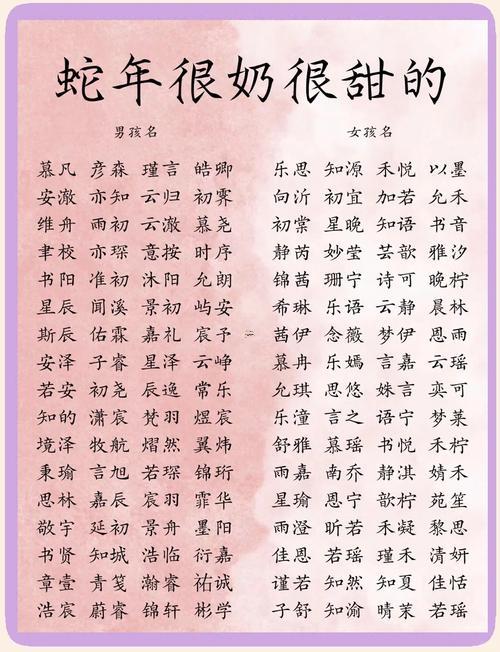 蛇年很奶很甜的
男孩名 女孩名
慕凡 彦森 瑾言 皓卿 乐思 知源 禾悦 以墨
安澈 亦知 云归 初霁 向沂 初宜 加若 允禾
维舟 雨初 云澈 慕尧 初棠 星晚 知语 书音
聿校 亦琛 意按 时序 静芮 妙莹 芸歆 雅汐
书阳 准初 沐阳 允朗 锦茜 珊宁 诗可 晚柠
星辰 闻溪 景初 屿安 希琳 乐语 云静 晨林
斯辰 佑霖 嘉礼 宸予 茜伊 念薇 梦伊 恩雨
安泽 子睿 星泽 云峥 慕冉 乐嫣 言嘉 云瑶
若安 初尧 辰逸 常乐 允琪 思悠 姝言 奕可
知的 潇宸 梵羽 煜宸 乐潼 言之 语宁 梦莱
境泽 牧航 熠然 翼炜 舒雅 慕瑶 书悦 禾柠
秉瑜 言旭 若琛 锦珩 雨嘉 南乔 静淇 婧禾
思林 嘉辰 宸羽 霏华 星瑜 恩宁 歆柠 苑笙
敬宇 延初 景舟 墨阳 雨澄 昕若 禾凝 黎思
书贤 知城 浩临 衍嘉 佳恩 若瑶 瑾禾 清妍
章壹 青笺 瀚睿 祐诚 谨若 知然 知夏 佳恬
浩宸 蔚睿 锦轩 彬学 子舒 知渝 晴茉 若瑶